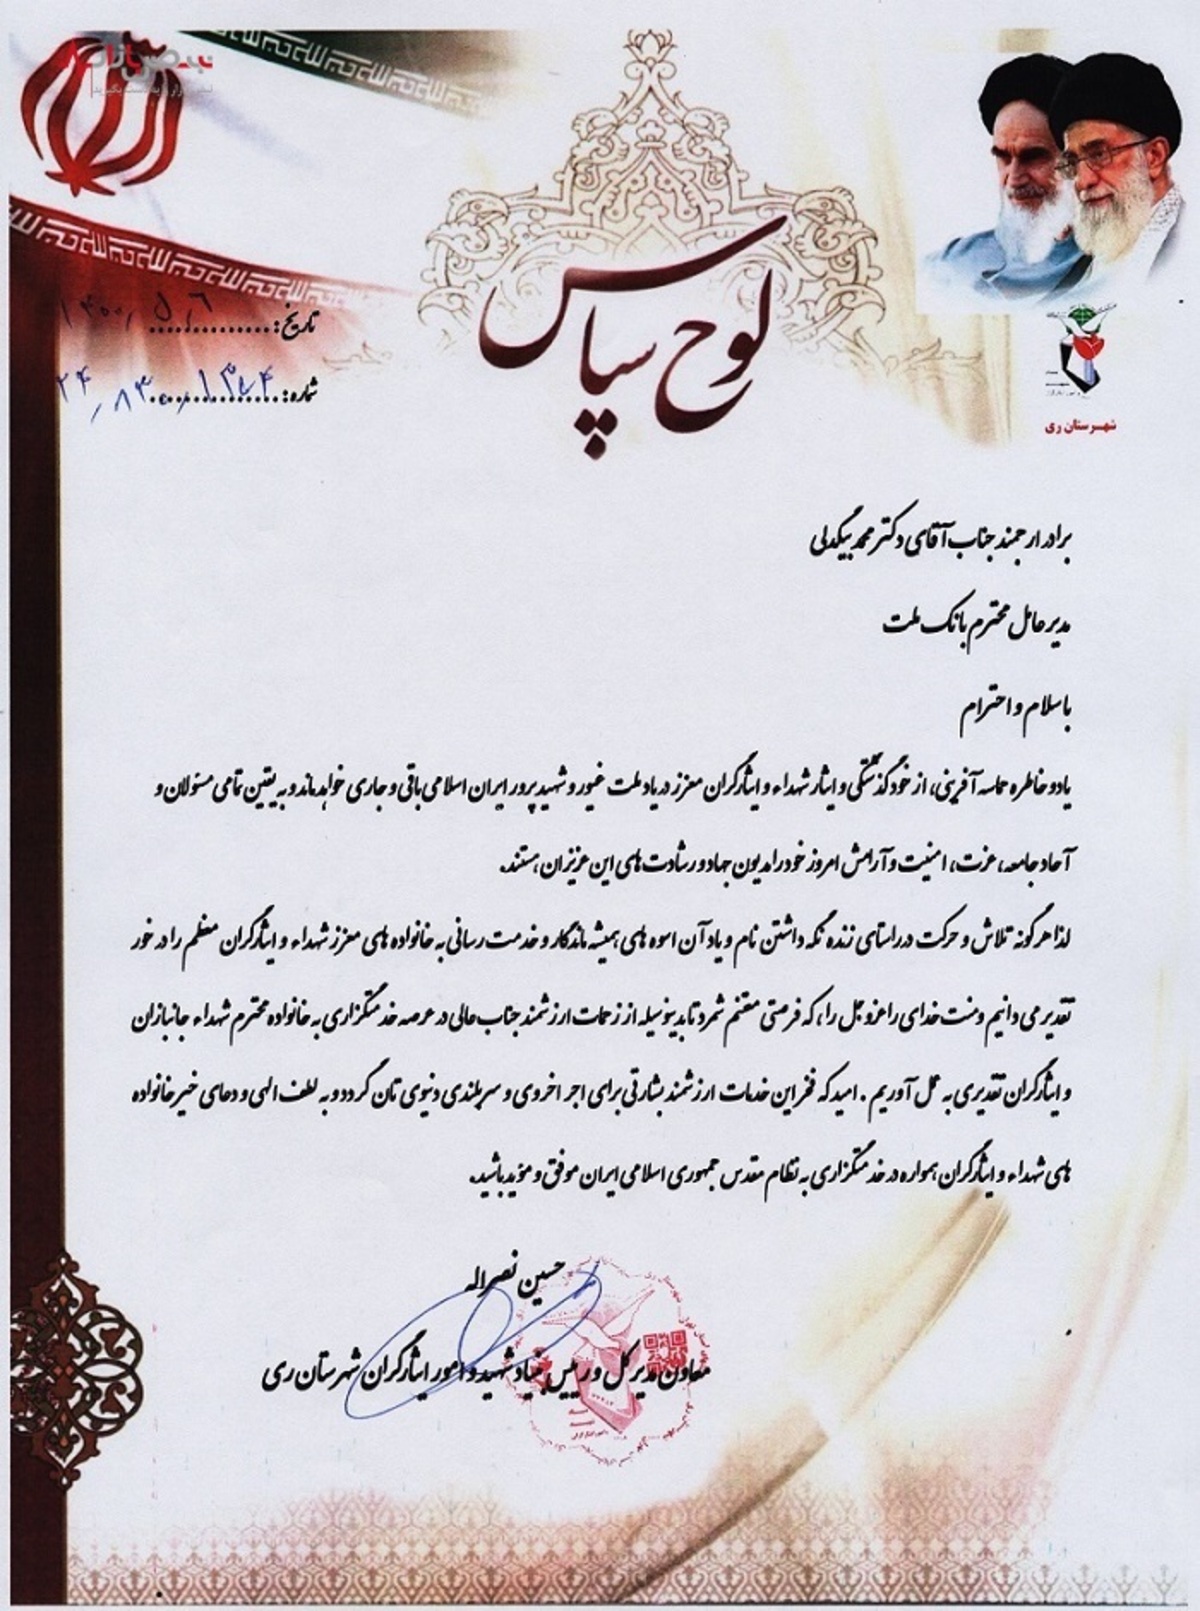 لوح سپاس
تاریخ: ۱۴۰۰/۵/۶
شماره:
شهرستان ری
برادر ارجمند جناب آقای دکتر محمد بیگدلی
مدیرعامل محترم بانک ملت
با سلام و احترام
یاد و خاطره حماسه آفرینی، از خودگذشتگی و ایثار شهداء و ایثارگران معزز در یاد ملت غیور و شهید پرور ایران اسلامی باقی و جاری خواهد ماند و به یقین تمامی مسئولان و
آحاد جامعه، عزت، امنیت و آرامش امروز خود را مدیون جهاد و رشادت های این عزیزان هستند.
لذا هرگونه تلاش و حرکت در راستای زنده نگه داشتن نام و یاد آن اسوه های همیشه ماندگار و خدمت رسانی به خانواده های معزز شهداء و ایثارگران معظم را در خور
تقدیر می دانیم و منت خدای را عزوجل را، که فرصتی مغتنم شمرد تا بدینوسیله از زحمات ارزشمند جناب عالی در عرصه خدمتگزاری به خانواده محترم شهداء جانبازان
و ایثارگران تقدیری به عمل آوریم . امید که فخر این خدمات ارزشمند بشارتی برای اجر اخروی و سربلندی دنیوی تان گردد و به لطف الهی و دعای خیر خانواده
های شهداء و ایثارگران همواره در خدمتگزاری به نظام مقدس جمهوری اسلامی ایران موفق و موید باشید.
حسین نصراله
معاون مدیرکل و رییس بنیاد شهید و امور ایثارگران شهرستان ری